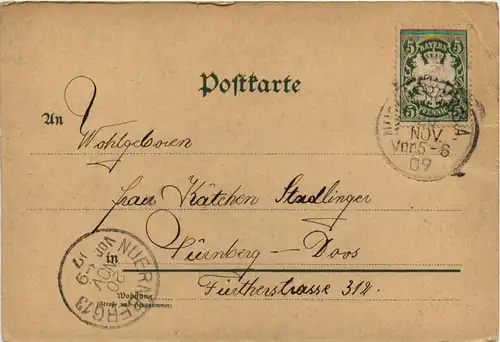 BAYERN
5 5
5 PFENNIG 5
Postkarte
NOV
Vor 5-6
09
An
Wohlgeboren
Frau Kätchen Stadlinger
in Nürnberg - Doos
Fürtherstrasse 312.
NUERNBERG 13
20
NOV
Wohnung
(Straße und Hausnummer)